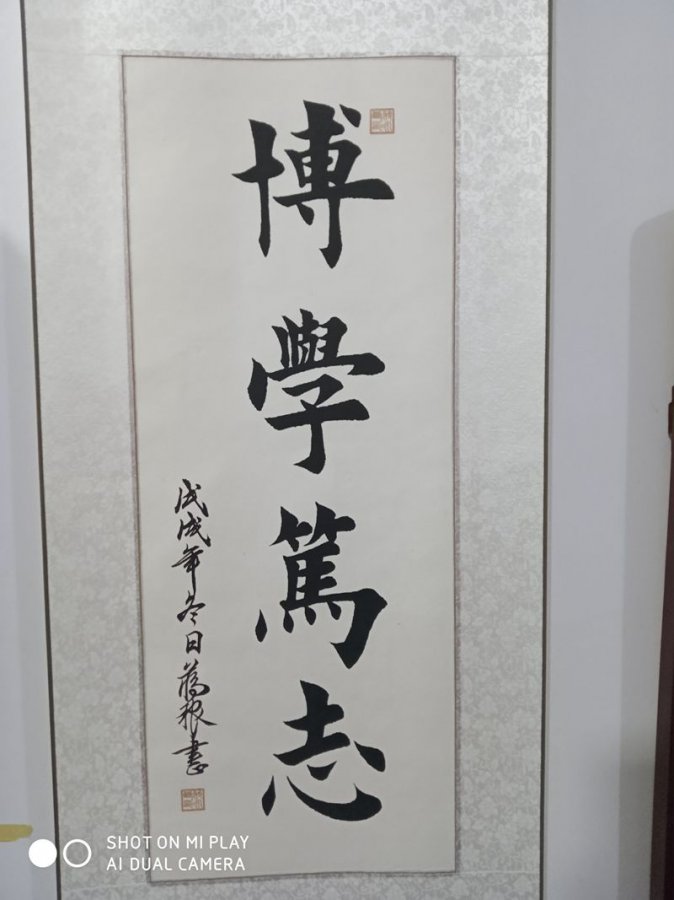 博學篤志
戊戌年冬日
根書
SHOT ON MI PLAY
AI DUAL CAMERA